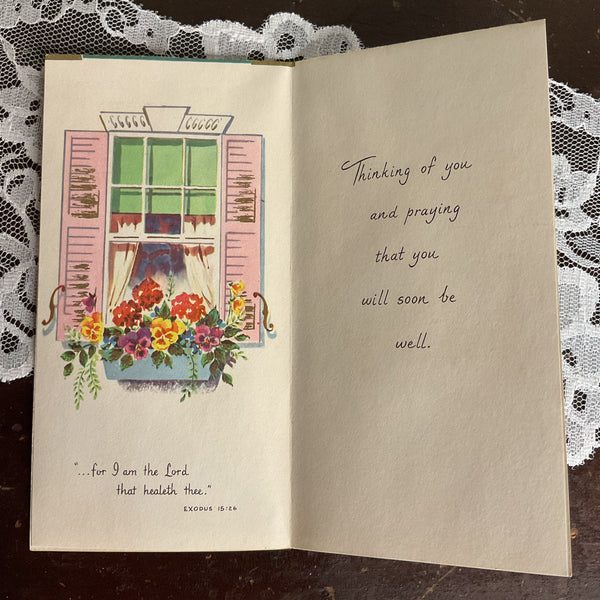 "...for I am the Lord
that healeth thee."
EXODUS 15:26
Thinking of you
and praying
that you
will soon be
well.